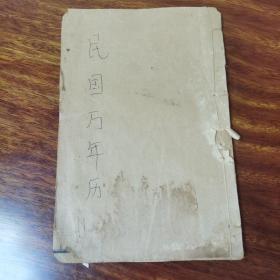 民国万年历